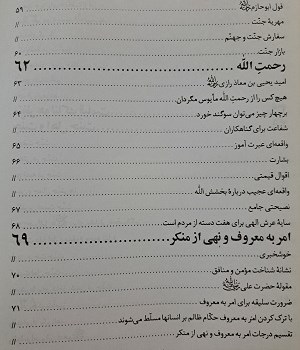 قول ابوحازم ۵۹
مهریهٔ جنّت //
سفارش جنّت و جهنّم //
بازار جنّت ۶۰
رحمتِ اللّه ۶۲
امید یحیی بن معاذ رازی ۶۳
هیچ کس را از رحمتِ اللّه مأیوس مگردان //
برچهار چیز می‌توان سوگند خورد ۶۴
شفاعت برای گناهکاران //
واقعه‌ای عبرت آموز ۶۵
بشارت ۶۶
اقوال قیمتی //
واقعه‌ای عجیب دربارهٔ بخشش اللّه //
نصیحتی جامع ۶۷
سایهٔ عرش الهی برای هفت دسته از مردم است ۶۸
امر به معروف و نهی از منکر ۶۹
خوشخبری //
نشانهٔ شناخت مؤمن و منافق ۷۰
مقولهٔ حضرت علی //
ضرورت سلیقه برای امر به معروف ۷۱
با ترک کردن امر به معروف حکّام ظالم بر انسانها مسلّط می‌شوند //
تقسیم درجات امر به معروف و نهی از منکر //